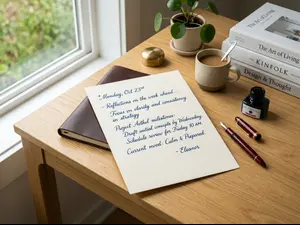 Monday, Oct 23rd
- Reflections on the week ahead
Focus on clarity and consistency
in strategy
Project Aethel milestones:
Draft initial concepts by Wednesday
Schedule review for Friday 10 AM
Current mood: Calm & Prepared.
- Eleanor
The Art of Living
KINFOLK
Design & Thought